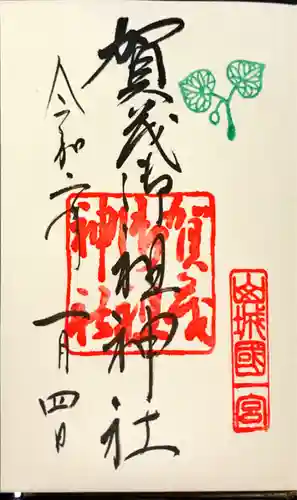 賀茂御祖神社
令和二年
一月四日
賀茂
御祖
神社
山城國一宮